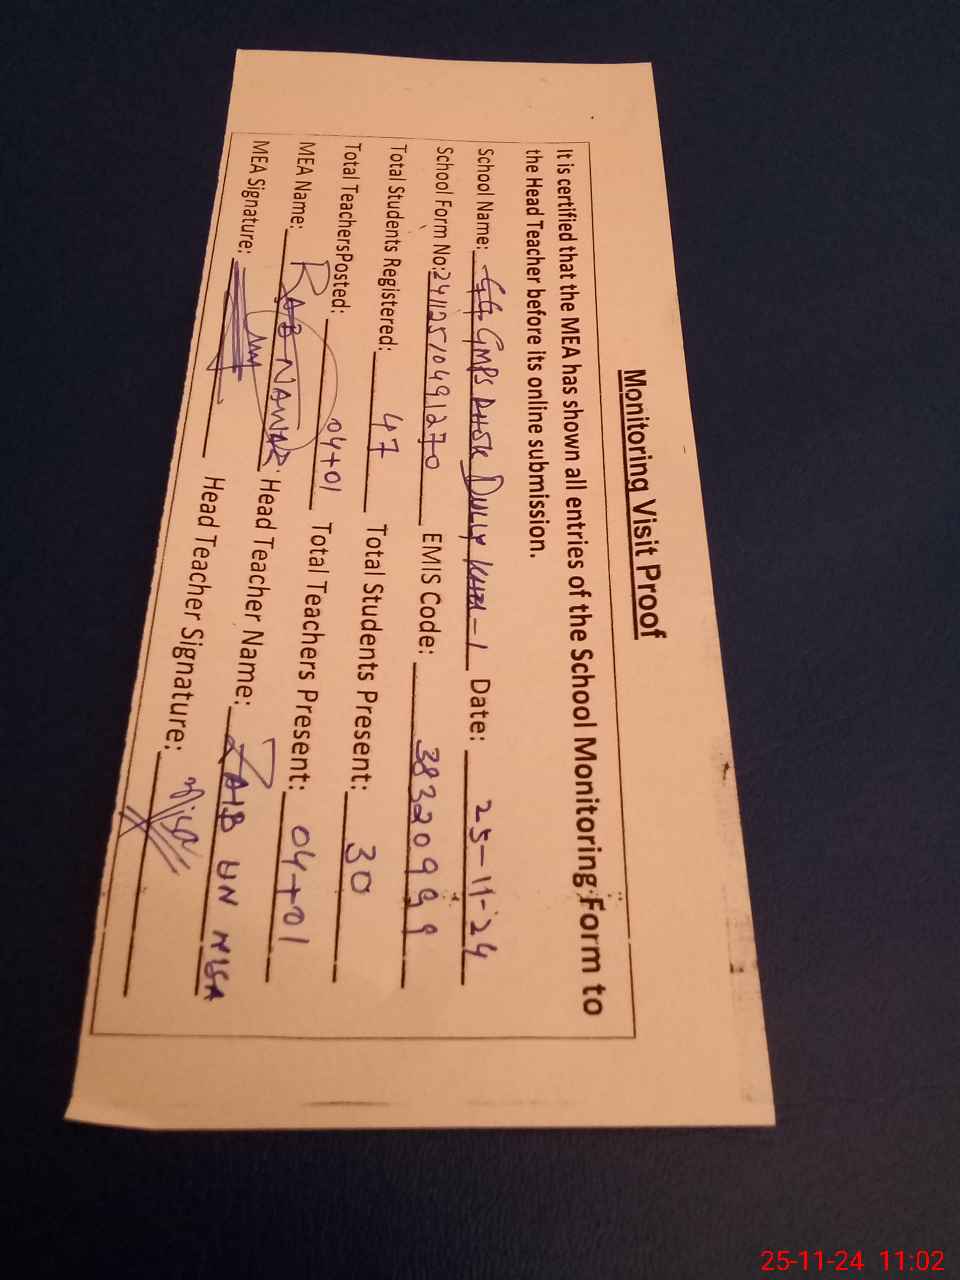 Monitoring Visit Proof
It is certified that the MEA has shown all entries of the School Monitoring Form to
the Head Teacher before its online submission.
School Name: GMPS DULLY - 1 Date: 25-11-24
School Form No:241125/0491270 EMIS Code: 38320999
Total Students Registered: 47 Total Students Present: 30
Total TeachersPosted: 04+01 Total Teachers Present: 04+01
MEA Name: RAB NAWAZ Head Teacher Name: ZAIB UN NISA
MEA Signature: Head Teacher Signature: Nisa
25-11-24 11:02